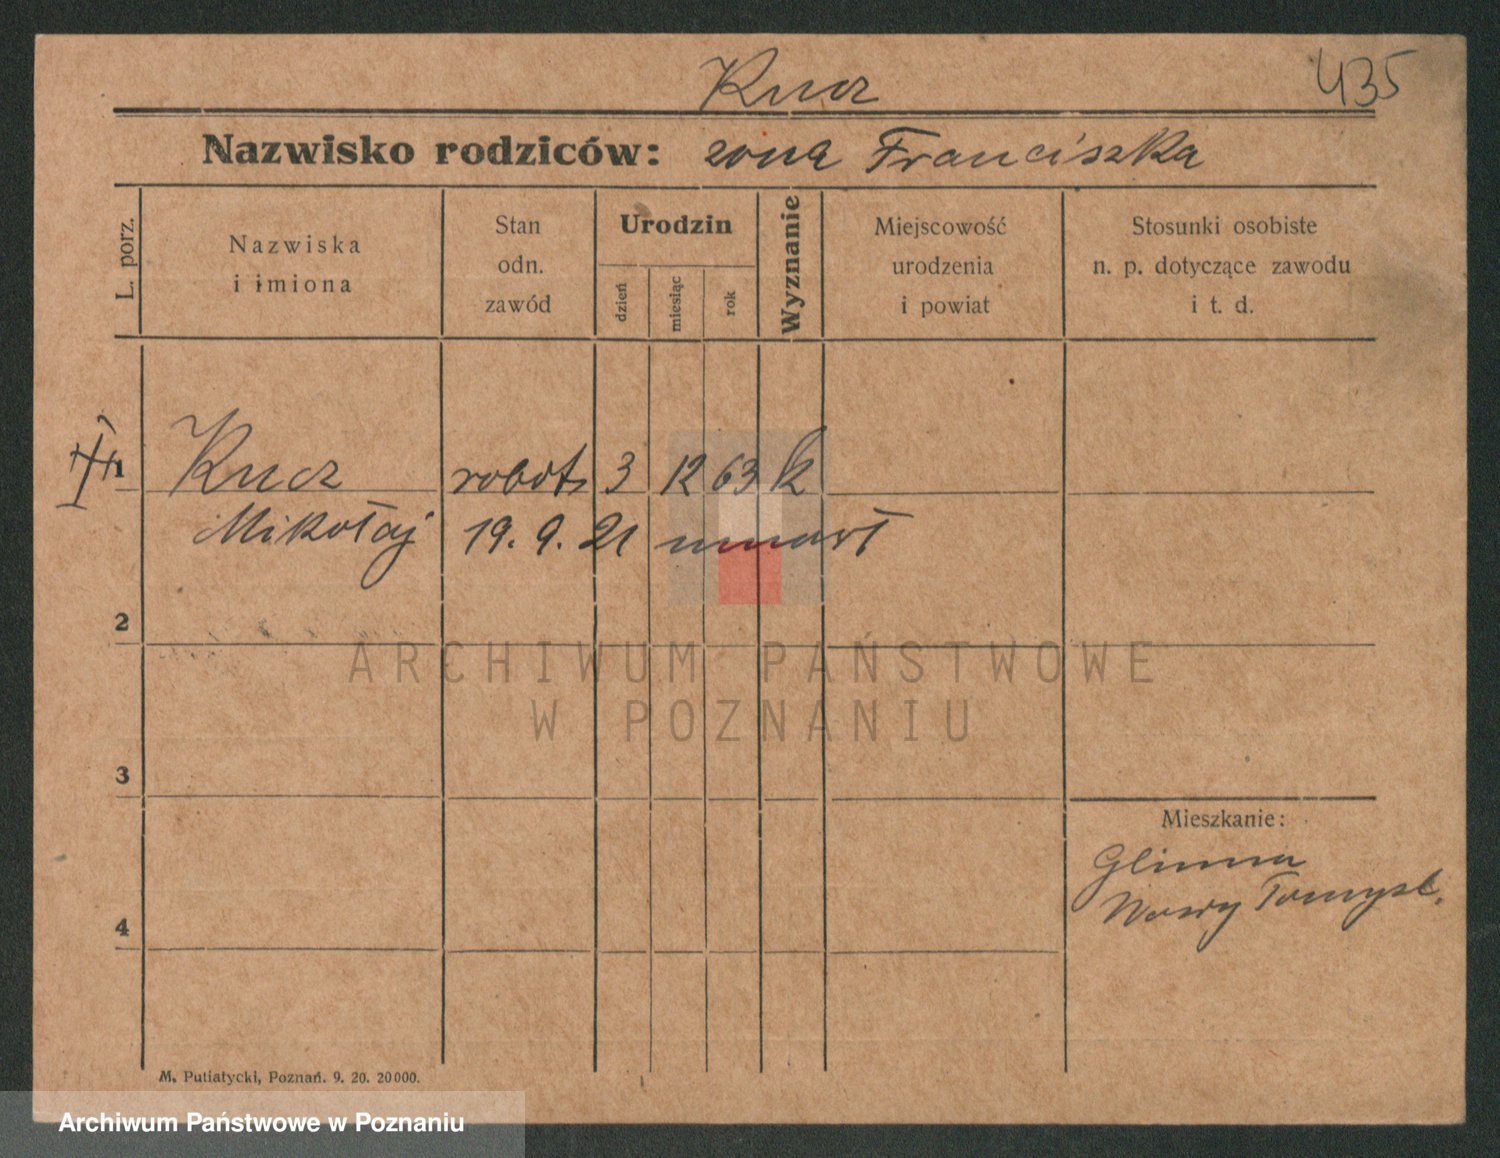 Kucz
435
Nazwisko rodziców: żona Franciszka
L. porz.
Nazwiska
i imiona
Stan
odn.
zawód
Urodzin
dzień
miesiąc
rok
Wyznanie
Miejscowość
urodzenia
i powiat
Stosunki osobiste
n. p. dotyczące zawodu
i t. d.
1 Kucz robotn 3 12 63 k
Mikołaj 19. 9. 21 umarł
2
ARCHIWUM PAŃSTWOWE
W POZNANIU
3
Mieszkanie:
Glinna
Nowy Tomyśl.
4
M. Putiatycki, Poznań. 9. 20. 20000.
Archiwum Państwowe w Poznaniu